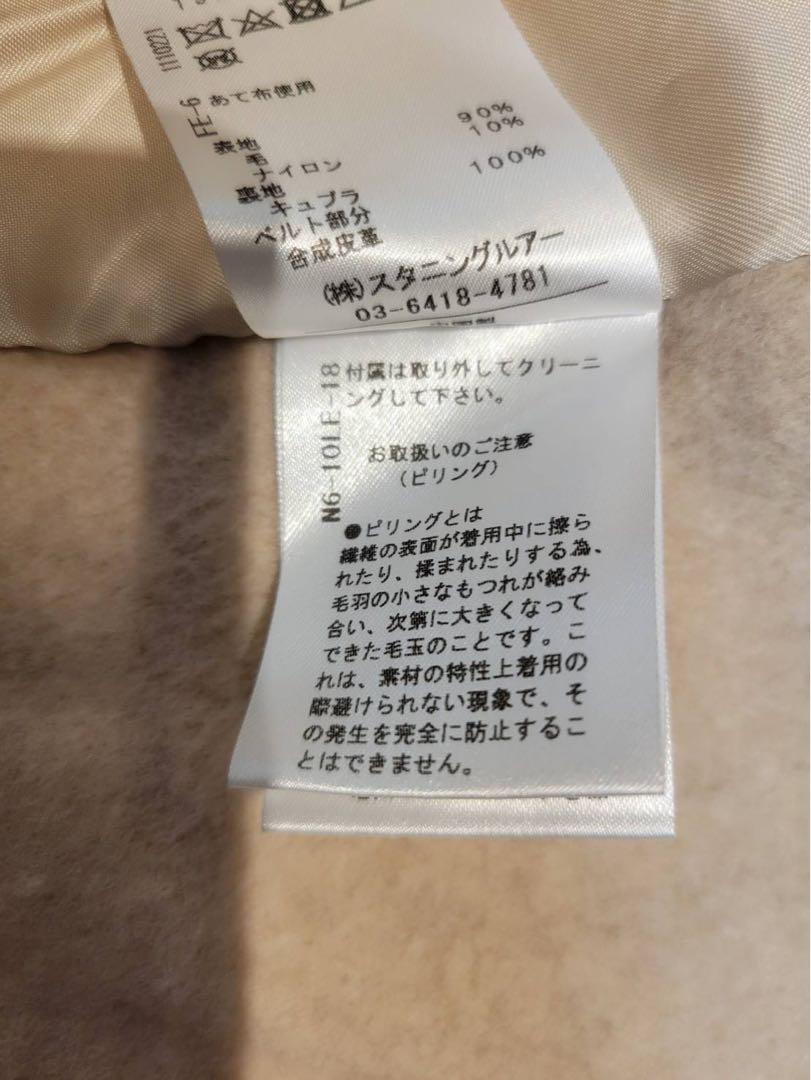 1110221
FE-6
あて布使用
表地
毛 90%
ナイロン 10%
裏地
キュプラ 100%
ベルト部分
合成皮革
(株)スタニングルアー
03-6418-4781
N6-10LE-18
付属は取り外してクリーニ
ングして下さい。
お取扱いのご注意
(ピリング)
●ピリングとは
繊維の表面が着用中に擦ら
れたり、揉まれたりする為、
毛羽の小さなもつれが絡み
合い、次第に大きくなって
できた毛玉のことです。こ
れは、素材の特性上着用の
際避けられない現象で、そ
の発生を完全に防止するこ
とはできません。